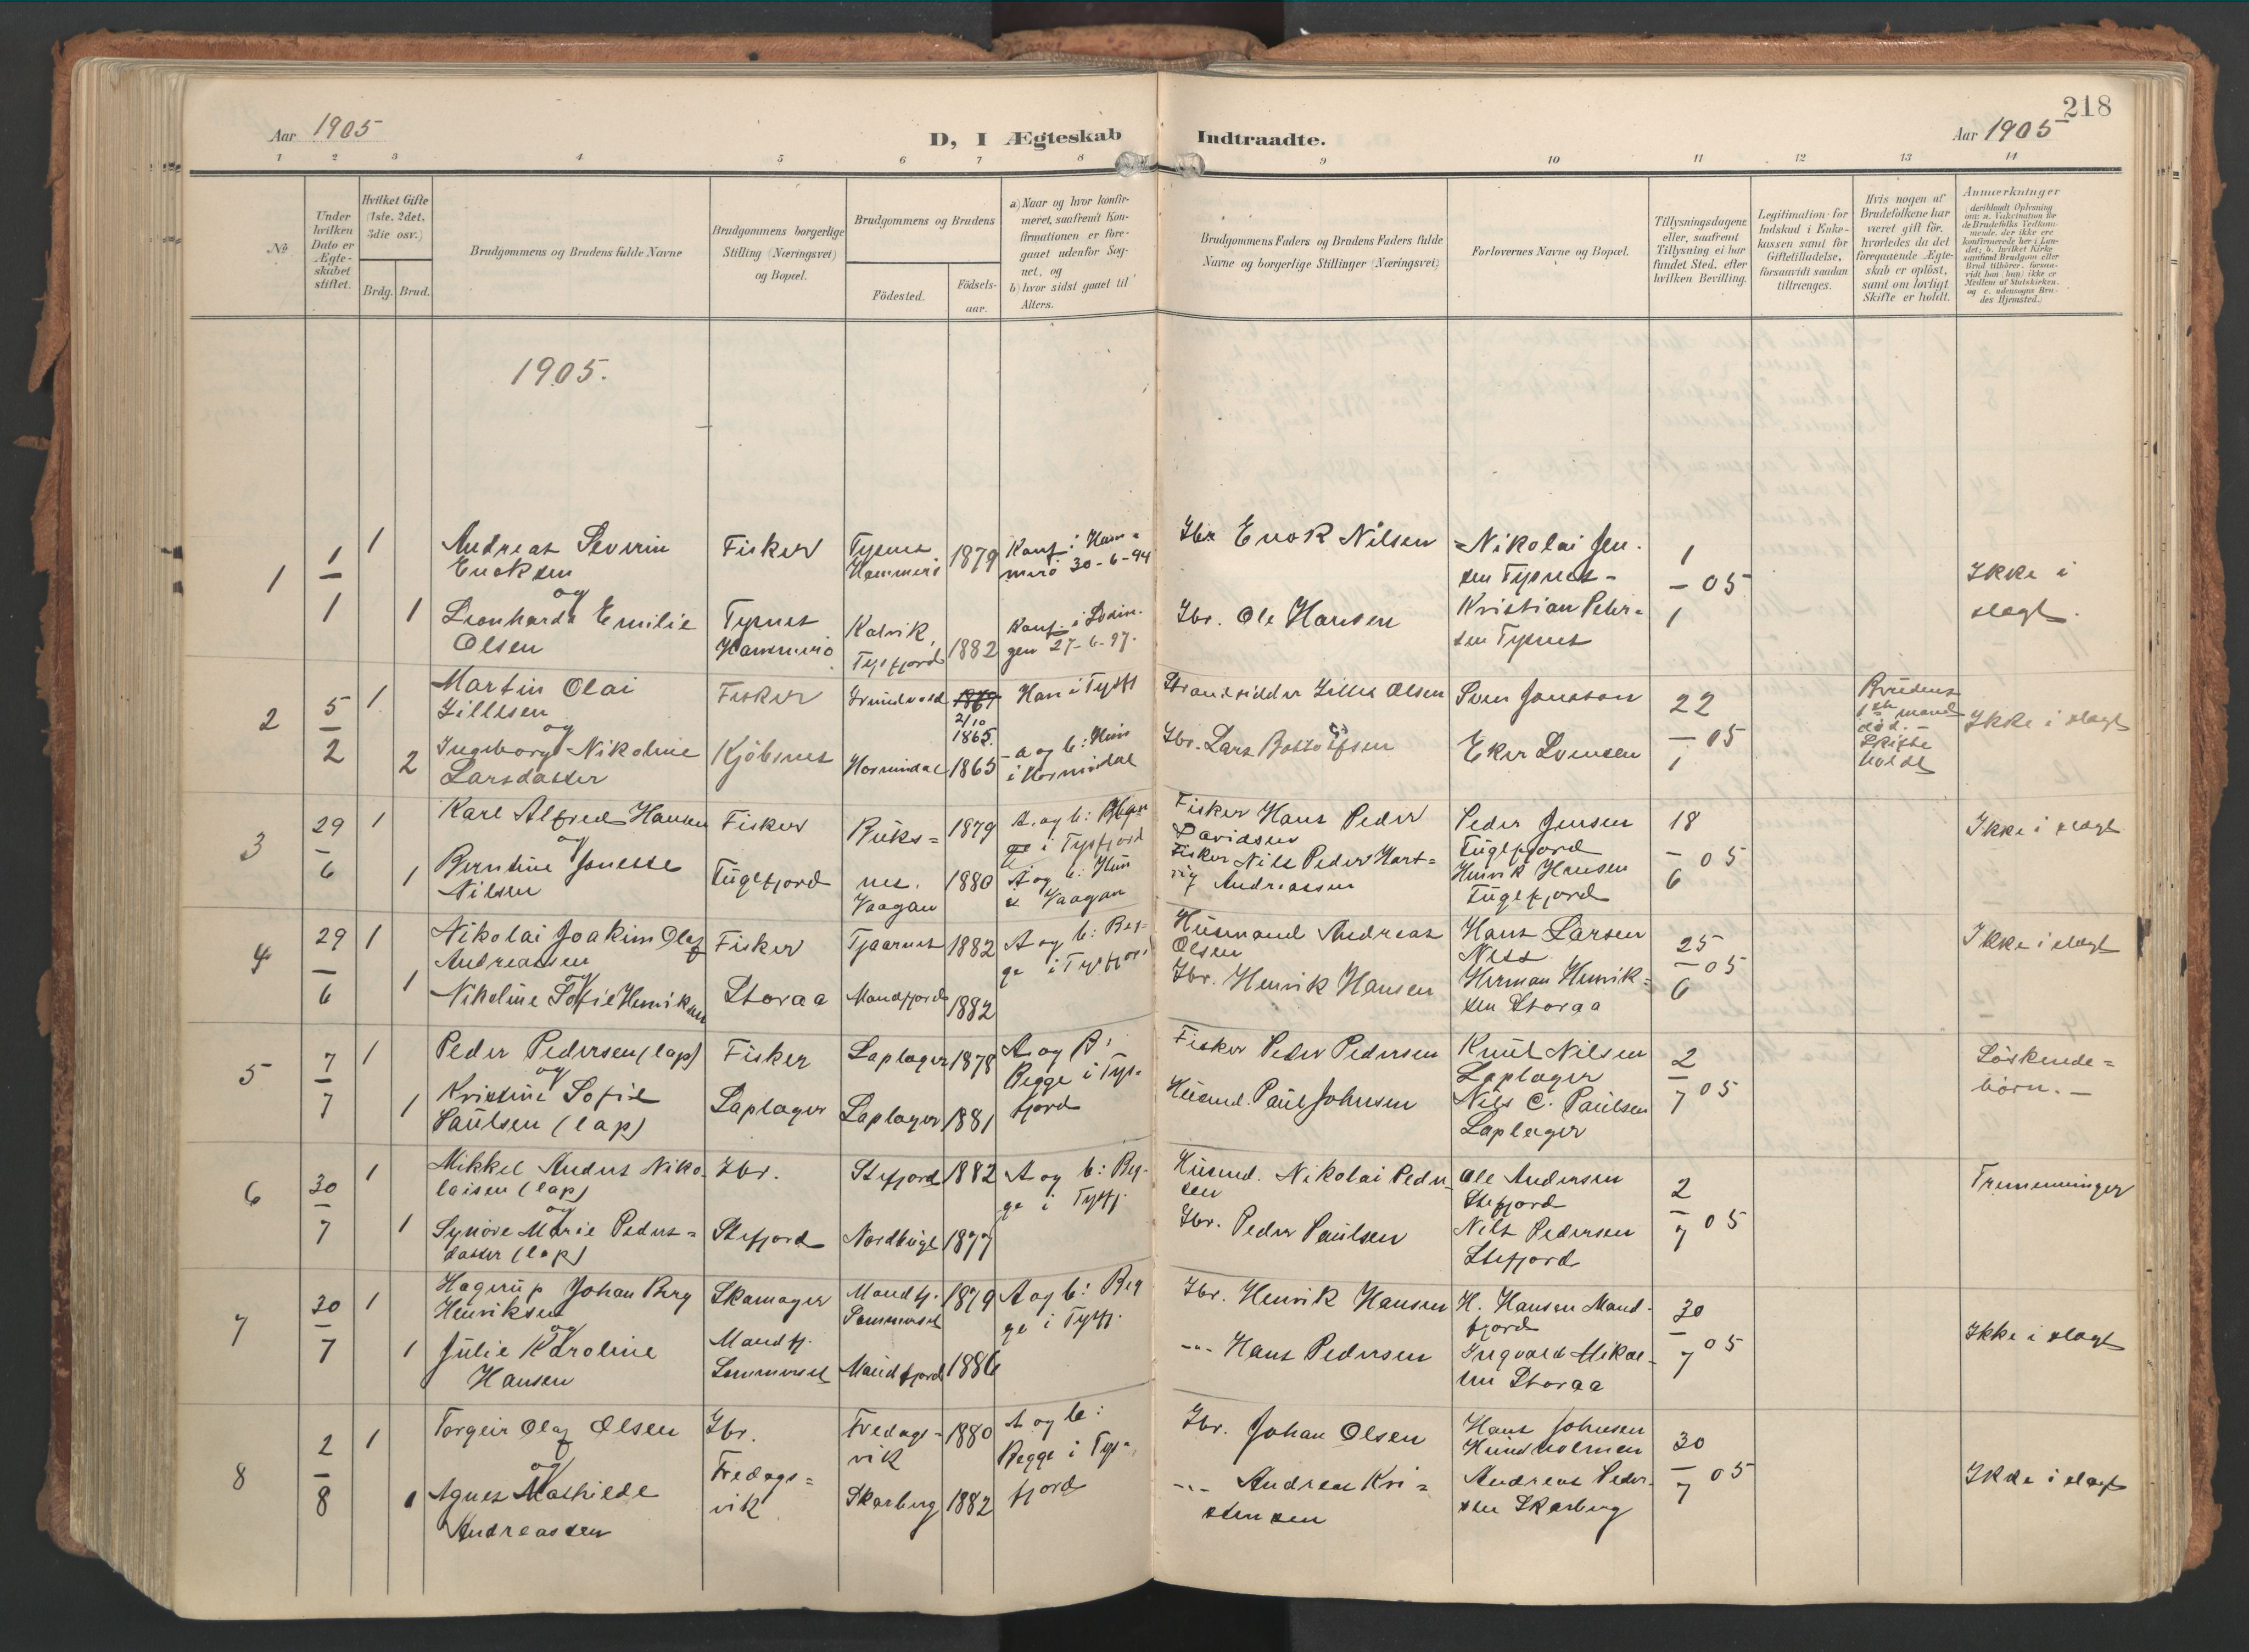 218
Aar 1905
D, I Ægteskab Indtraadte.
Aar 1905
1 2 3 4 5 6 7 8 9 10 11 12 13 14
№
Under
hvilken
Dato er
Ægte-
skabet
stiftet.
Hvilket Gifte
(1ste, 2det,
3die osv.)
Brdg. Brud.
Brudgommens og Brudens fulde Navne
Brudgommens borgerlige
Stilling (Næringsvei)
og Bopæl.
Brudgommens og Brudens
Födested.
Födsels-
aar.
a) Naar og hvor konfir-
meret, saafremt Kon-
firmationen er fore-
gaaet udenfor Sog-
net, og
b) hvor sidst gaaet til
Alters.
Brudgommens Faders og Brudens Faders fulde
Navne og borgerlige Stillinger (Næringsvei)
Forlovernes Navne og Bopæl.
Tillysningsdagene
eller, saafremt
Tillysning ei har
fundet Sted, efter
hvilken Bevilling.
Legitimation for
Indskud i Enke-
kassen samt for
Giftetilladelse,
forsaavidt saadan
tiltrænges.
Hvis nogen af
Brudefolkene har
været gift för,
hvorledes da det
foregaaende Ægte-
skab er oplöst,
samt om lovligt
Skifte er holdt.
Anmærkninger
(deriblandt Oplysning
om: a. Vakcination for
de Brudefolks Vedkom-
mende, der ikke ere
konfirmerede her i Lan-
det; b. hvilket Kirke-
samfund Brudgom eller
Brud tilhörer, forsaa-
vidt han (hun) ikke er
Medlem af Statskirken,
og c. udensogns Bru-
des Hjemsted.)
1905.
1
1
—
1
1
1
Andreas Severin
Enoksen
og
Leonharda Emilie
Olsen
Fisker
Tysnes
Hammerö
Tysnes
Hammerö
Kalvik,
Tysfjord
1879
1882
Konf. i Ham-
merö 30-6-94
Konf. i Lödin-
gen 27-6-97.
Ibr Enok Nilsen
Ibr. Ole Hansen
Nikolai Jen-
sen Tysnes-
Kristian Peder-
sen Tysnes
1
— 05
1
Ikke i
slegt.
2
5
—
2
1
2
Martin Olai
Zillesen
og
Ingeborg Nikoline
Larsdatter
Fisker
Kjöbsnes
Hornindal
1867
2/10
1865.
1865
Han i Tysfj
a og b: Hun
i Hornindal
Strandsidder Zilles Olsen
Ibr. Lars
Sven Jonsson
Eker Svensen
22
— 05
1
Brudens
1ste mand
död. —
Skifte
holdt
Ikke i slegt
3
29
—
6
1
1
Karl Alfred Hansen
og
Berntine Jonette
Nilsen
Fisker
Fuglefjord
Buks-
nes.
Vaagan
1879
1880
A. og b: Beg
ge i Tysfjord
A og b: Hun
i Vaagan
Fisker Hans Peder
Davidsen
Fisker Nils Peder Hart-
vig Andreassen
Peder Jensen
Fuglefjord
Henrik Hansen
Fuglefjord
18
— 05
6
Ikke i slegt
4
29
—
6
1
1
Nikolai Joakim Olaf
Andreassen
og
Nikoline Sofie Henriksen
Fisker
Storaa
Tjaarnes
Mandfjord
1882
1882
A og b: Beg-
ge i Tysfjord
Husmand Andreas
Olsen
Ibr. Henrik Hansen
Hans Larsen
Ness
Herman Henrik-
sen Storaa
25
— 05
6
Ikke i slegt
5
7
—
7
1
1
Peder Pedersen (lap)
og
Kristine Sofie
Paulsen (lap)
Fisker
Laplager
Laplager
Laplager
1878
1881
A og B:
Begge i Tys-
fjord
Fisker Peder Pedersen
Husmd. Paul Johnsen
Knut Nilsen
Laplager
Nils C. Paulsen
Laplager
2
— 05
7
Söskende-
börn. —
6
30
—
7
1
1
Mikkel Anders Niko-
laisen (lap)
og
Synöve Marie Peders-
datter (lap)
Ibr.
Stefjord
Stefjord
Nordbugt
1882
1877
A og b: Beg-
ge i Tysfj.
Husmd. Nikolai Peder-
sen
Ibr. Peder Paulsen
Ole Andersen
Stefjord
Nils Pedersen
Stefjord
2
— 05
7
Tremenninger
7
30
—
7
1
1
Hagerup Johan Berg
Henriksen
og
Julie Karoline
Hansen
Skomager
Mandfj.
Sommerset
Mandfj.
Sommerset
Mandfjord
1879
1886
A og b: Beg
ge i Tysfj.
Ibr. Henrik Hansen
-"- Hans Pedersen
H. Hansen Mand-
fjord
Ingvald Mikal-
sen Storaa
30
— 05
7
Ikke i slegt
8
2
—
8
1
1
Torgeir Olaf Olsen
og
Agnes Mathilde
Andreassen
Ibr.
Fredags-
vik
Fredags-
vik
Skarberg
1880
1882
A og b:
Begge i Tys-
fjord
Ibr. Johan Olsen
-"- Andreas Kri-
stensen
Hans Johnsen
Hundholmen
Andreas Peder-
sen Skarberg
30
— 05
7
Ikke i slegt